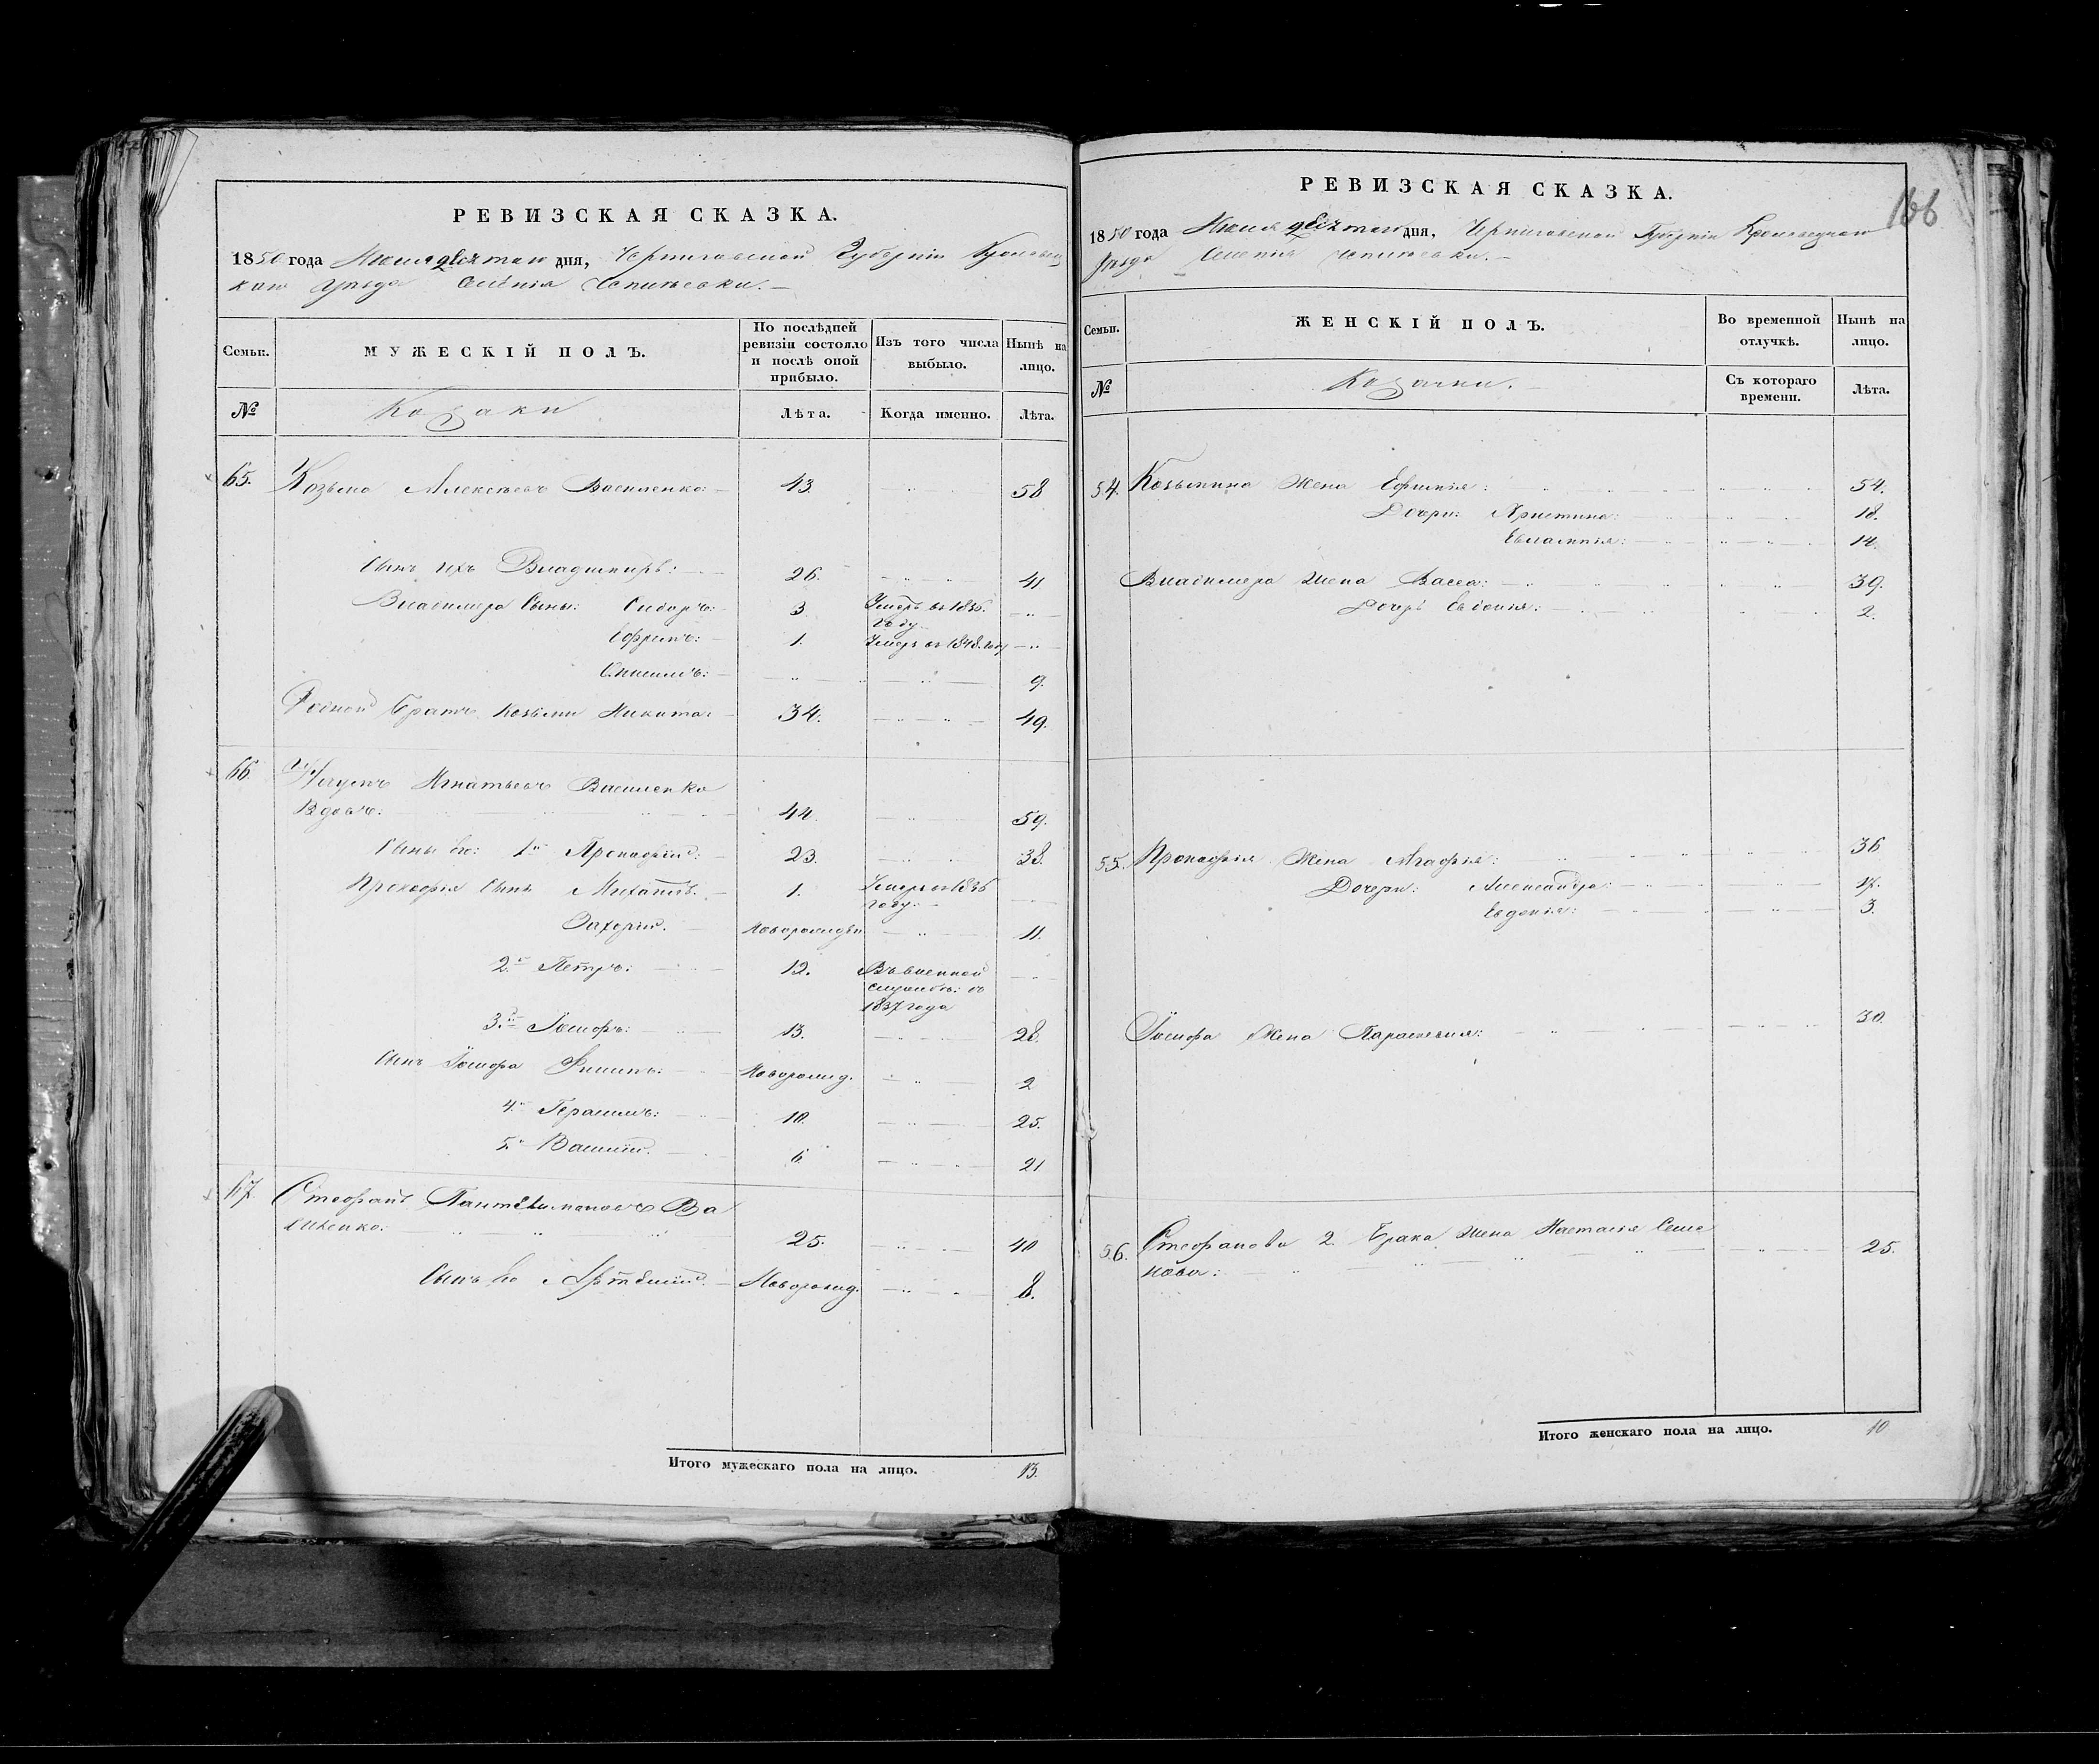 РЕВИЗСКАЯ СКАЗКА.
1850 года дня, Черниговской Губерніи Кролевец
каго уѣзда Селенія
Семьи.
МУЖЕСКІЙ ПОЛЪ.
По послѣдней ревизіи состояло и послѣ оной прибыло.
Изъ того числа выбыло.
Нынѣ на лицо.
№
Козаки
Лѣта.
Когда именно.
Лѣта.
65. Козьма Алексѣевъ Василенко: 43. 58
Сынъ ихъ Владимиръ: 26. 41
Владимера Сыны: Сидоръ: 3 Умеръ въ 1836. году
Ефремъ: 1. Умеръ въ 1848. году
9.
Родной братъ Козьмы Никита: 34. 49.
66. Наумъ Игнатьевъ Василенко
Вдовъ: 44. 59.
Сыны его: 1й Прокофій: 23. 38.
Прокофія Сынъ Михаилъ. 1. Умеръ въ 1836 году.
Захарій. Новорожден 11.
2й Петръ: 12. Въ военной службѣ: съ 1837 года
3й Іосифъ: 13. 28.
Сынъ Іосифа Новорожд. 2
4й Герасимъ: 10. 25.
5й Василій. 6. 21
67. Стефанъ Пантелимоновъ Ва
силенко: 25. 40
Сынъ его Артемій. Новорожд. 8.
Итого мужескаго пола на лицо. 13.
166
РЕВИЗСКАЯ СКАЗКА.
1850 года дня, Черниговской Губерніи Кролевецкаго
Уѣзда Селенія
Семьи.
ЖЕНСКІЙ ПОЛЪ.
Во временной отлучкѣ.
Нынѣ на лицо.
№
Козачки.
Съ котораго времени.
Лѣта.
54. Козьмина Жена Ефимія: 54.
Дочери: Христина: 18.
Евлампія: 14.
Владимера Жена Васса: 39.
Дочерь Евдокія: 2.
55. Прокофія Жена Агафія: 36
Дочери: Александра: 17.
Евдокія: 3.
Іосифа Жена Параскевия: 30.
56. Стефанова 2. брака жена Настасія Семе
нова: 25.
Итого женскаго пола на лицо. 10